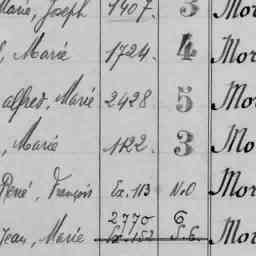 Marie, Joseph 1407. 3 Mor
, Marie 1724. 4 Mor
alfred, Marie 2428 5 Mor
, Marie 1122. 3 Mor
René, François Ex. 113 N.O Mor
2770 6
Jean, Marie Ex. 152 S.G. Mor